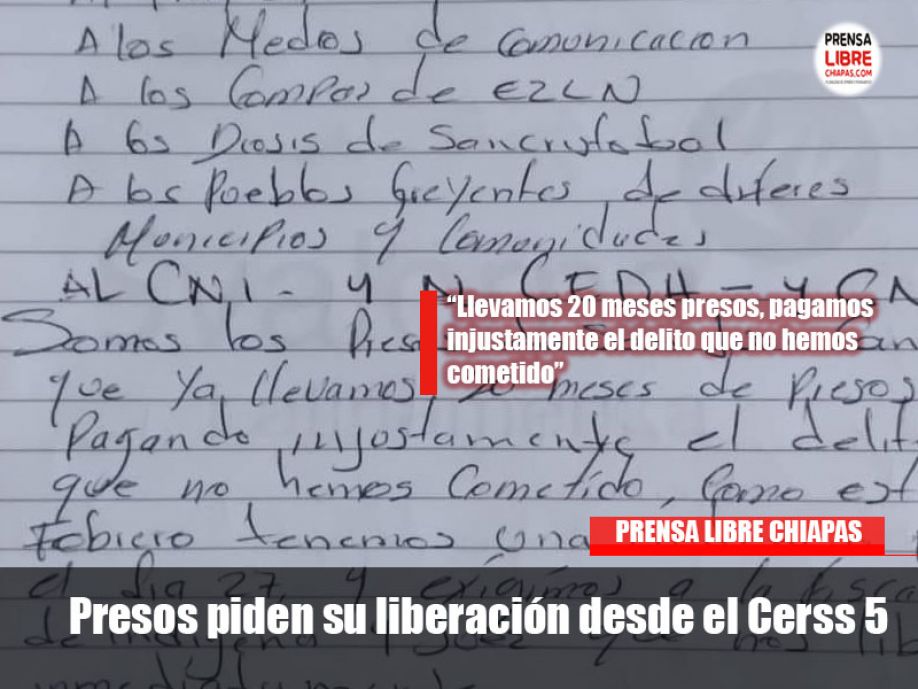 A los Medios de Comunicacion
A los Compas de EZLN
A los Diosis de Sancrstobal
A los Pueblos Creyentes de diferes
Municipios y Comonidades
AL CNI - y N CEDH - y CN
Somos los Preso
que Ya llevamos 20 meses de Presos
Pagando injustamente el delit
que no hemos Cometido, Como est
Febrero tenemos Una
el dia 27, y exigimos a la fisca
de indigena
inmediatamente
PRENSA
LIBRE
CHIAPAS.COM
“Llevamos 20 meses presos, pagamos
injustamente el delito que no hemos
cometido”
PRENSA LIBRE CHIAPAS
Presos piden su liberación desde el Cerss 5